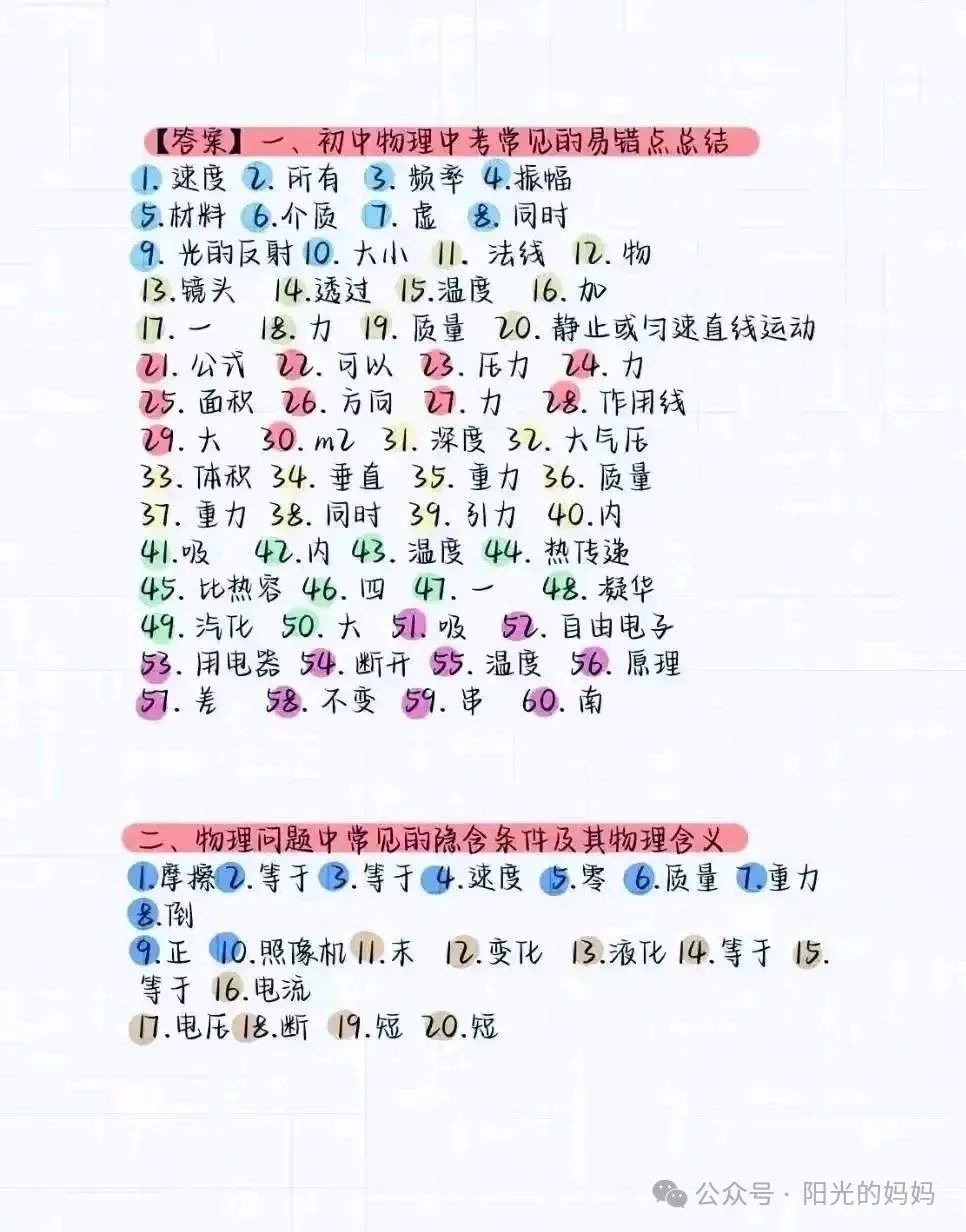 【答案】一、初中物理中考常见的易错点总结
1. 速度 2. 所有 3. 频率 4.振幅
5.材料 6.介质 7. 虚 8. 同时
9. 光的反射 10. 大小 11. 法线 12. 物
13.镜头 14.透过 15.温度 16. 加
17. 一 18. 力 19. 质量 20. 静止或匀速直线运动
21. 公式 22. 可以 23. 压力 24. 力
25. 面积 26. 方向 27. 力 28. 作用线
29. 大 30. m2 31. 深度 32. 大气压
33. 体积 34. 垂直 35. 重力 36. 质量
37. 重力 38. 同时 39. 引力 40.内
41.吸 42.内 43. 温度 44. 热传递
45. 比热容 46. 四 47. 一 48. 凝华
49. 汽化 50. 大 51. 吸 52. 自由电子
53. 用电器 54. 断开 55. 温度 56. 原理
57. 差 58. 不变 59. 串 60. 南
二、物理问题中常见的隐含条件及其物理含义
1.摩擦 2.等于 3.等于 4.速度 5.零 6.质量 7.重力
8.倒
9.正 10.照像机 11.末 12.变化 13.液化 14.等于 15.
等于 16.电流
17.电压 18.断 19.短 20.短
公众号·阳光的妈妈